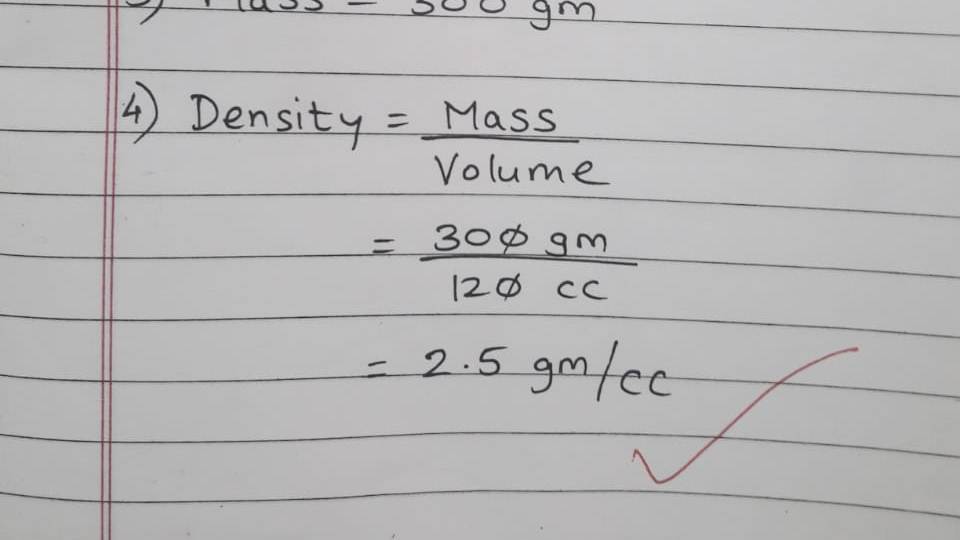 3) Mass = 300 gm
4) Density = Mass
Volume
= 300 gm
120 cc
= 2.5 gm/cc